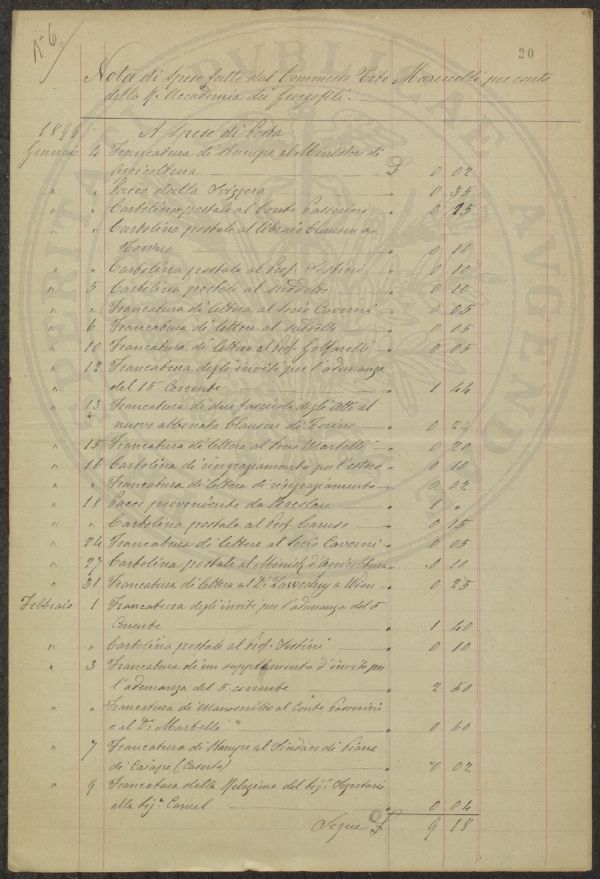 N° 6.
20
Nota di spese fatte dal Commesso Tito Marucelli per conto
della R. Accademia dei Georgofili.
A Spese di Posta
Gennaio 4 Francatura di stampe al Ministero di
Agricoltura £ 0 02
" " Pacco dalla Svizzera " 0 35
" " Cartolina postale al Conte Passerini " 0 15
" " Cartolina postale al libraio Clausen a
Torino " 0 10
" " Cartolina postale al Prof. Sestini " 0 10
" 5 Cartolina postale al suddetto " 0 10
" " Francatura di lettera al Socio Caverni " 0 05
" 6 Francatura di lettera al suddetto " 0 05
" 10 Francatura di lettera al Prof. Golfarelli " 0 05
" 12 Francatura degli inviti per l'adunanza
del 15 Corrente " 1 44
" 13 Francatura di due fascicoli degli Atti al
nuovo abbonato Clausen di Torino " 0 24
" 15 Francatura di lettera al Socio Martelli " 0 20
" 16 Cartolina di ringraziamento per l'estero " 0 10
" " Francatura di lettera di ringraziamento " 0 02
" 18 Pacco proveniente da Breslau " 1 "
" " Cartolina postale al Prof. Caruso " 0 15
" 24 Francatura di lettera al Socio Caverni " 0 05
" 27 Cartolina postale al Minist. d'Agricoltura " 0 10
" 31 Francatura di lettera al Dr. a Wien " 0 25
Febbraio 1 Francatura degli inviti per l'adunanza del 5
Corrente " 1 40
" " Cartolina postale al Prof. Sestini " 0 10
" 3 Francatura di un supplemento d'invito per
l'adunanza del 5 corrente " 2 50
" " Francatura di Manoscritto al Conte Passerini
e al Dr. Martelli " 0 60
" 7 Francatura di stampe al Sindaco di Piana
di Caiazzo (Caserta) " 0 02
" 9 Francatura della Relazione del Sig. Segretario
alla Sig.a " 0 04
Segue £ 9 18
PERPETUITATI PVBLICAE AVGENDAE